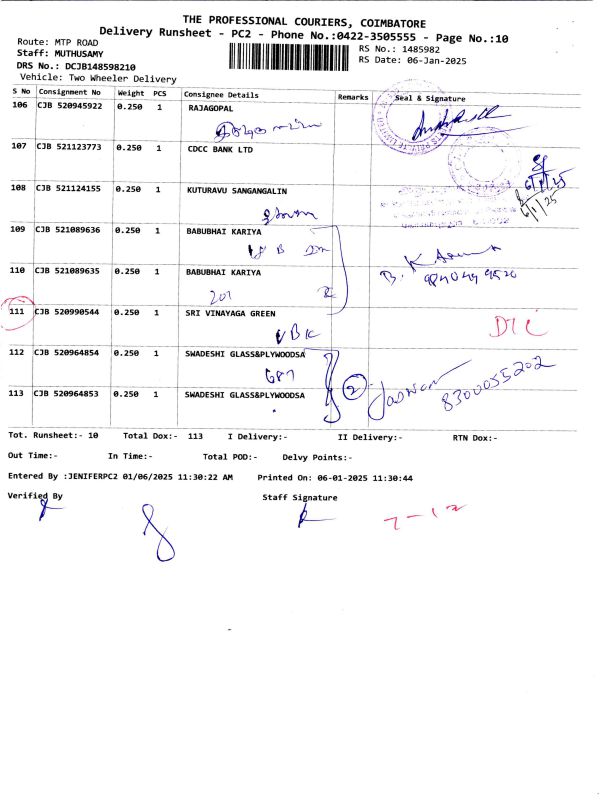 THE PROFESSIONAL COURIERS, COIMBATORE
Delivery Runsheet - PC2 - Phone No.:0422-3505555 - Page No.:10
Route: MTP ROAD
Staff: MUTHUSAMY
DRS No.: DCJB148598210
Vehicle: Two Wheeler Delivery
RS No.: 1485982
RS Date: 06-Jan-2025
S No Consignment No Weight PCS Consignee Details Remarks Seal & Signature
106 CJB 520945922 0.250 1 RAJAGOPAL
107 CJB 521123773 0.250 1 CDCC BANK LTD
6/1/25
108 CJB 521124155 0.250 1 KUTURAVU SANGANGALIN
6/1/25
109 CJB 521089636 0.250 1 BABUBHAI KARIYA
110 CJB 521089635 0.250 1 BABUBHAI KARIYA
201
111 CJB 520990544 0.250 1 SRI VINAYAGA GREEN
VBK
112 CJB 520964854 0.250 1 SWADESHI GLASS&PLYWOODSA
687
2
8300055202
113 CJB 520964853 0.250 1 SWADESHI GLASS&PLYWOODSA
Tot. Runsheet:- 10 Total Dox:- 113 I Delivery:- II Delivery:- RTN Dox:-
Out Time:- In Time:- Total POD:- Delvy Points:-
Entered By :JENIFERPC2 01/06/2025 11:30:22 AM Printed On: 06-01-2025 11:30:44
Verified By Staff Signature
7-12